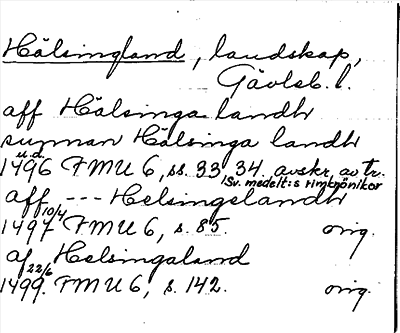 Hälsingland, landskap,
Gävleb. l.
aff Hälsinga landh
sunnan Hälsinga landh
u.d.
1496 FMU 6, ss. 33 34. avskr. av tr.
Sv. medelt:s rimkrönikor
aff --- Helsingelandh
10/4
1497 FMU 6, s. 85. orig.
af Helsingaland
22/6
1499. FMU 6, s. 142. orig.